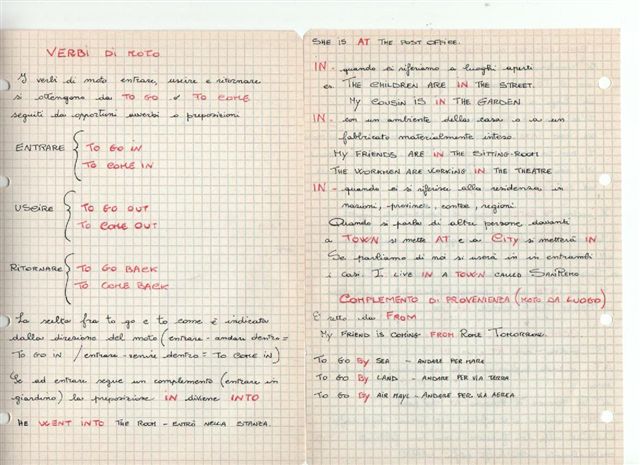 VERBI DI MOTO
I verbi di moto entrare, uscire e ritornare
si ottengono da TO GO e TO COME
seguiti da opportuni avverbi o preposizioni
ENTRARE { TO GO IN
TO COME IN
USCIRE { TO GO OUT
TO COME OUT
RITORNARE { TO GO BACK
TO COME BACK
La scelta fra to go e to come è indicata
dalla direzione del moto (entrare - andare dentro =
TO GO IN / entrare - venire dentro = TO COME IN)
Se ad entrare segue un complemento (entrare in
giardino) la preposizione IN diviene INTO
HE WENT INTO THE ROOM - ENTRÒ NELLA STANZA.
SHE IS AT THE POST OFFICE.
IN - quando ci riferiamo a luoghi aperti
es. THE CHILDREN ARE IN THE STREET.
MY COUSIN IS IN THE GARDEN
IN - con un ambiente della casa o a un
fabbricato materialmente inteso.
MY FRIENDS ARE IN THE SITTING-ROOM
THE WORKMEN ARE WORKING IN THE THEATRE
IN - quando ci si riferisce alla residenza in
nazioni, province, contee, regioni.
Quando si parla di altre persone davanti
a TOWN si mette AT e a CITY si metterà IN
Se parliamo di noi si userà in in entrambi
i casi. I LIVE IN A TOWN CALLED SANREMO
COMPLEMENTO DI PROVENIENZA (MOTO DA LUOGO)
È retto da FROM
MY FRIEND IS COMING FROM ROME TOMORROW.
TO GO BY SEA - ANDARE PER MARE
TO GO BY LAND - ANDARE PER VIA TERRA
TO GO BY AIR MAYL - ANDARE PER VIA AEREA